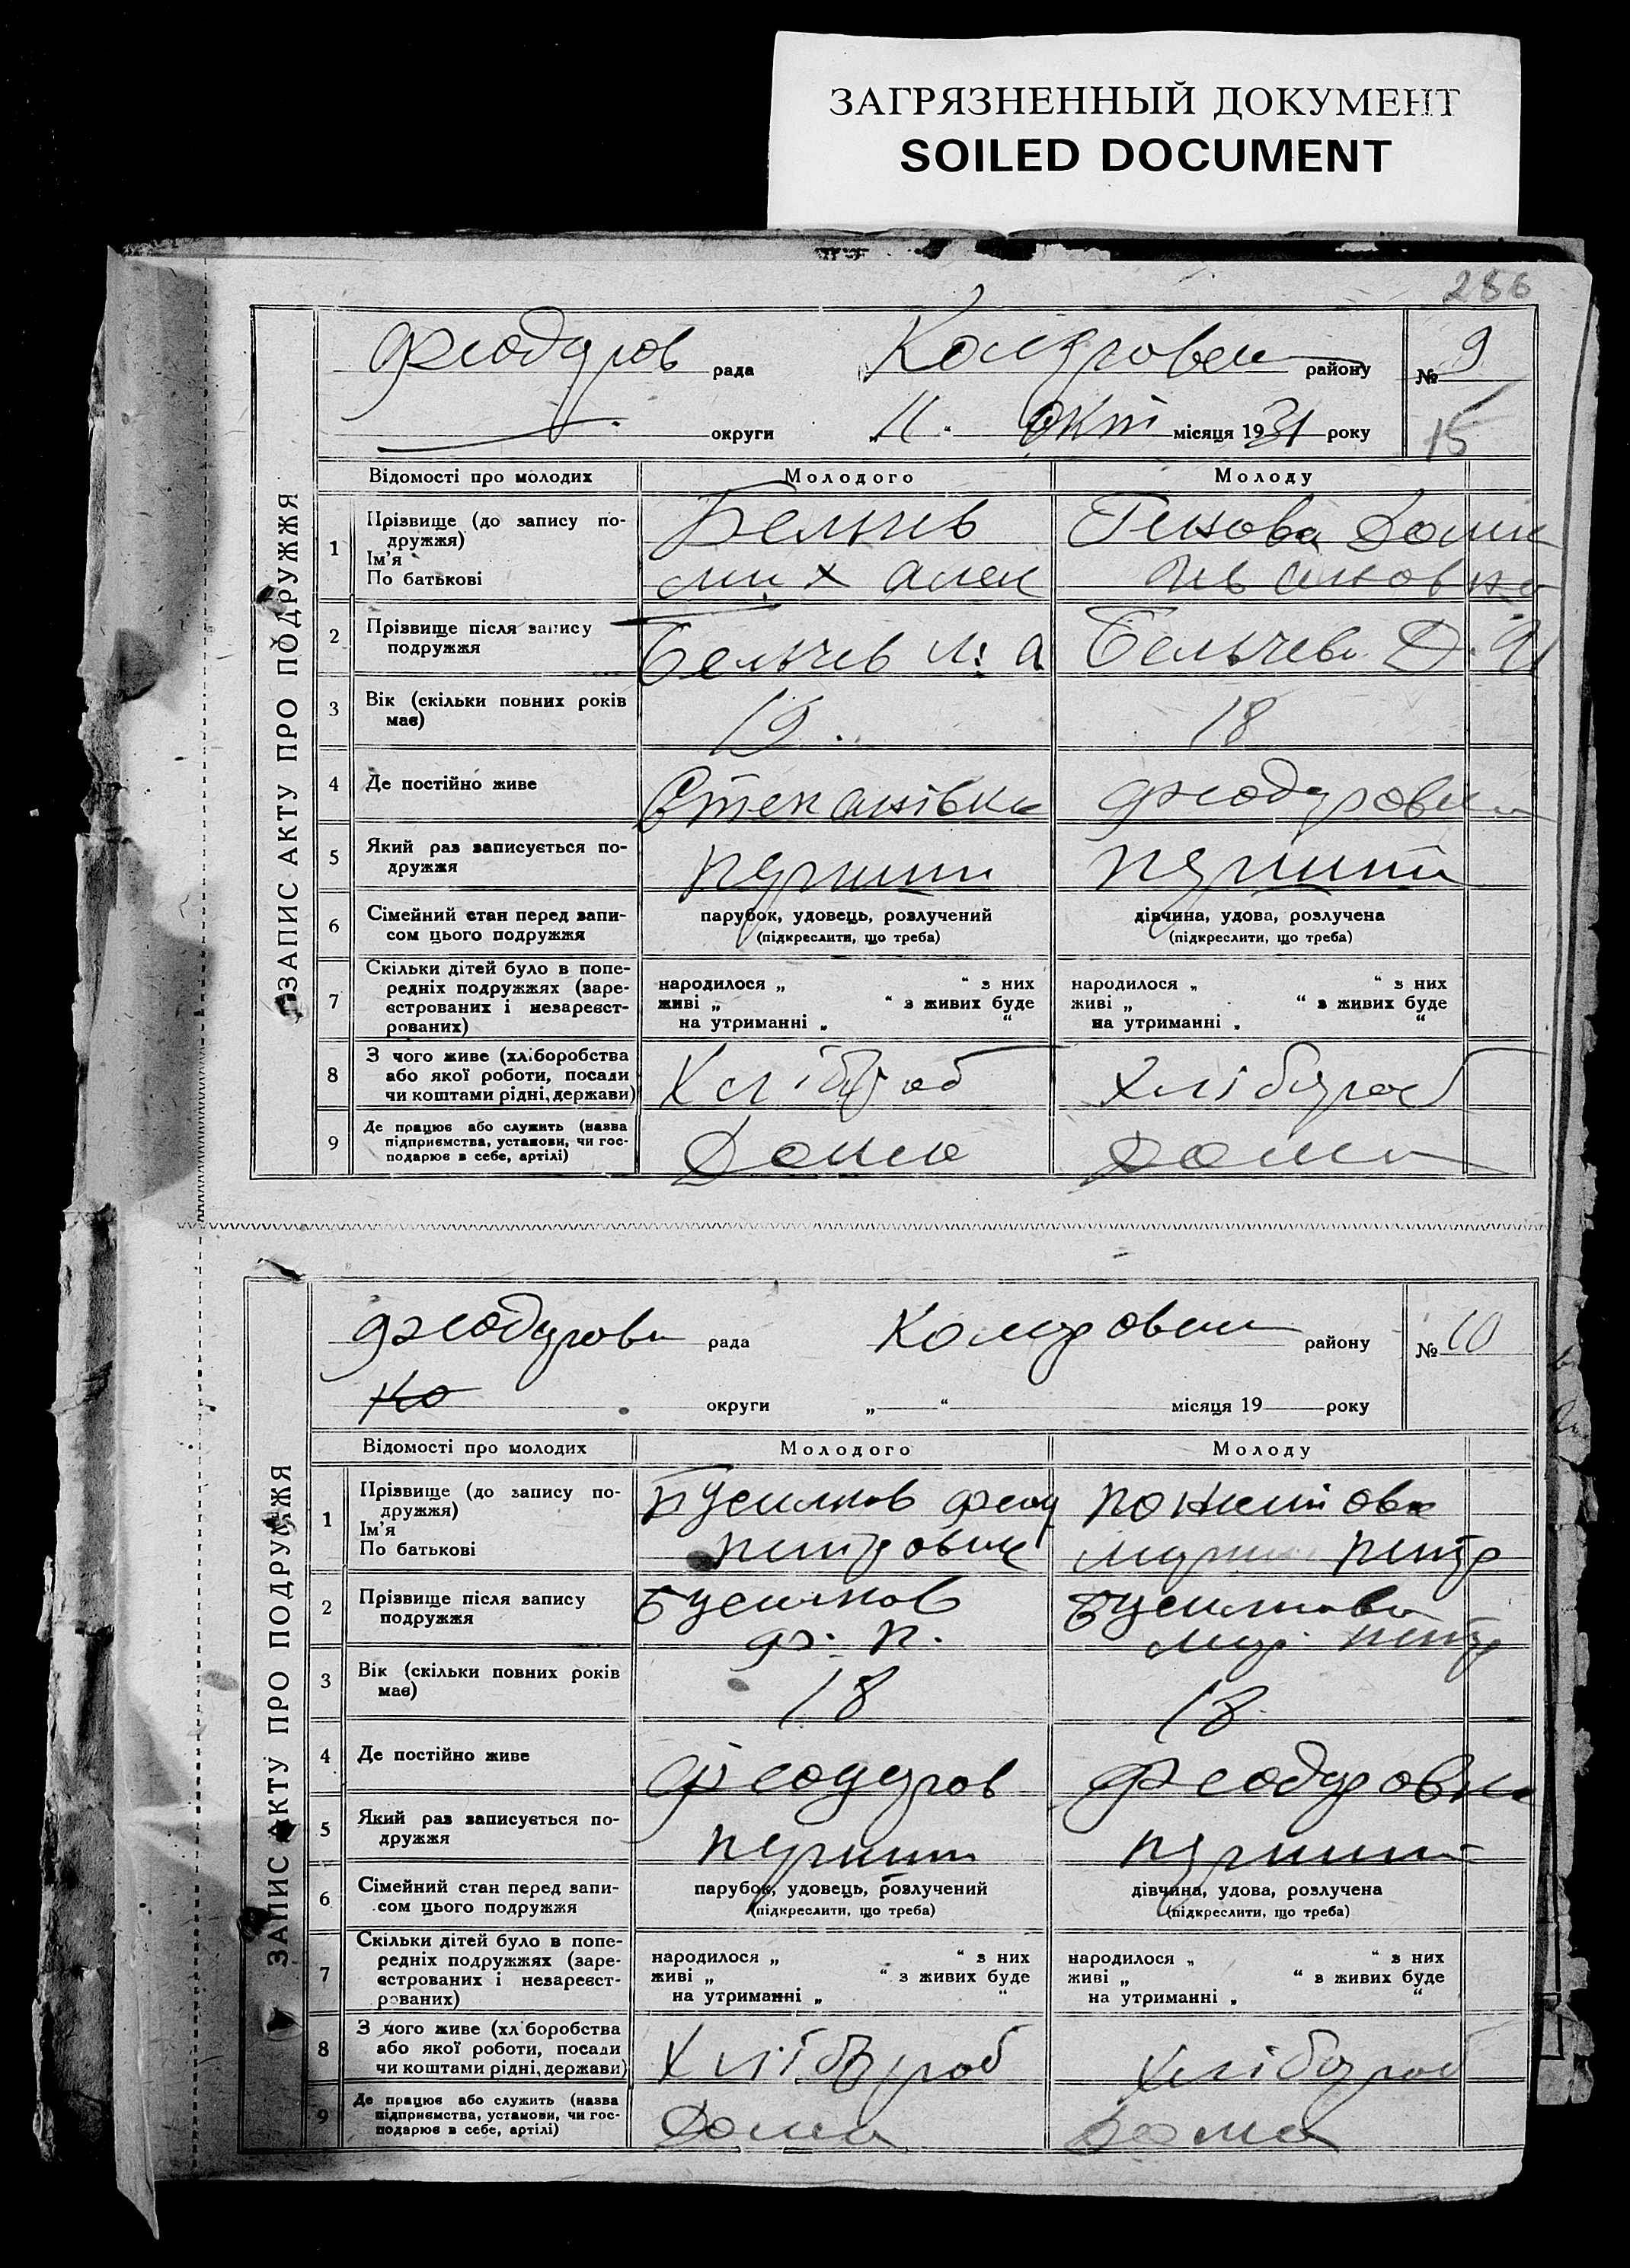 ЗАГРЯЗНЕННЫЙ ДОКУМЕНТ
SOILED DOCUMENT
286
ЗАПИС АКТУ ПРО ПОДРУЖЖЯ
Феодуров рада району № 9
округи „11“ окт місяця 1931 року 15
Відомості про молодих Молодого Молоду
1 Прізвище (до запису по-
дружжя)
Ім'я
По батькові
Бельчев
мих алек
Генова
Ивановна
2 Прізвище після запису
подружжя
Бельчев М. А. Бельчева Д. И
3 Вік (скільки повних років
має)
19. 18
4 Де постійно живе Степанівка Феодуровка
5 Який раз записується по-
дружжя
перший перший
6 Сімейний стан перед запи-
сом цього подружжя
парубок, удовець, розлучений
(підкреслити, що треба)
дівчина, удова, розлучена
(підкреслити, що треба)
7 Скільки дітей було в попе-
редніх подружжях (заре-
єстрованих і незареєст-
рованих)
народилося „ “ з них
живі „ “ з живих буде
на утриманні „ “
народилося „ “ з них
живі „ “ з живих буде
на утриманні „ “
8 З чого живе (хліборобства
або якої роботи, посади
чи коштами рідні, держави)
Хлібороб Хлібороб
9 Де працює або служить (назва
підприємства, установи, чи гос-
подарює в себе, артілі)
Дома Дома
ЗАПИС АКТУ ПРО ПОДРУЖЖЯ
Феодурови рада району № 10
округи „ “ місяця 19 року
Відомості про молодих Молодого Молоду
1 Прізвище (до запису по-
дружжя)
Ім'я
По батькові
петрович
петр
2 Прізвище після запису
подружжя
Ф. П.
3 Вік (скільки повних років
має)
18 18
4 Де постійно живе Феодуров Феодуровка
5 Який раз записується по-
дружжя
перший перший
6 Сімейний стан перед запи-
сом цього подружжя
парубок, удовець, розлучений
(підкреслити, що треба)
дівчина, удова, розлучена
(підкреслити, що треба)
7 Скільки дітей було в попе-
редніх подружжях (заре-
єстрованих і незареєст-
рованих)
народилося „ “ з них
живі „ “ з живих буде
на утриманні „ “
народилося „ “ з них
живі „ “ з живих буде
на утриманні „ “
8 З чого живе (хліборобства
або якої роботи, посади
чи коштами рідні, держави)
Хлібороб Хлібороб
9 Де працює або служить (назва
підприємства, установи, чи гос-
подарює в себе, артілі)
Дома Дома